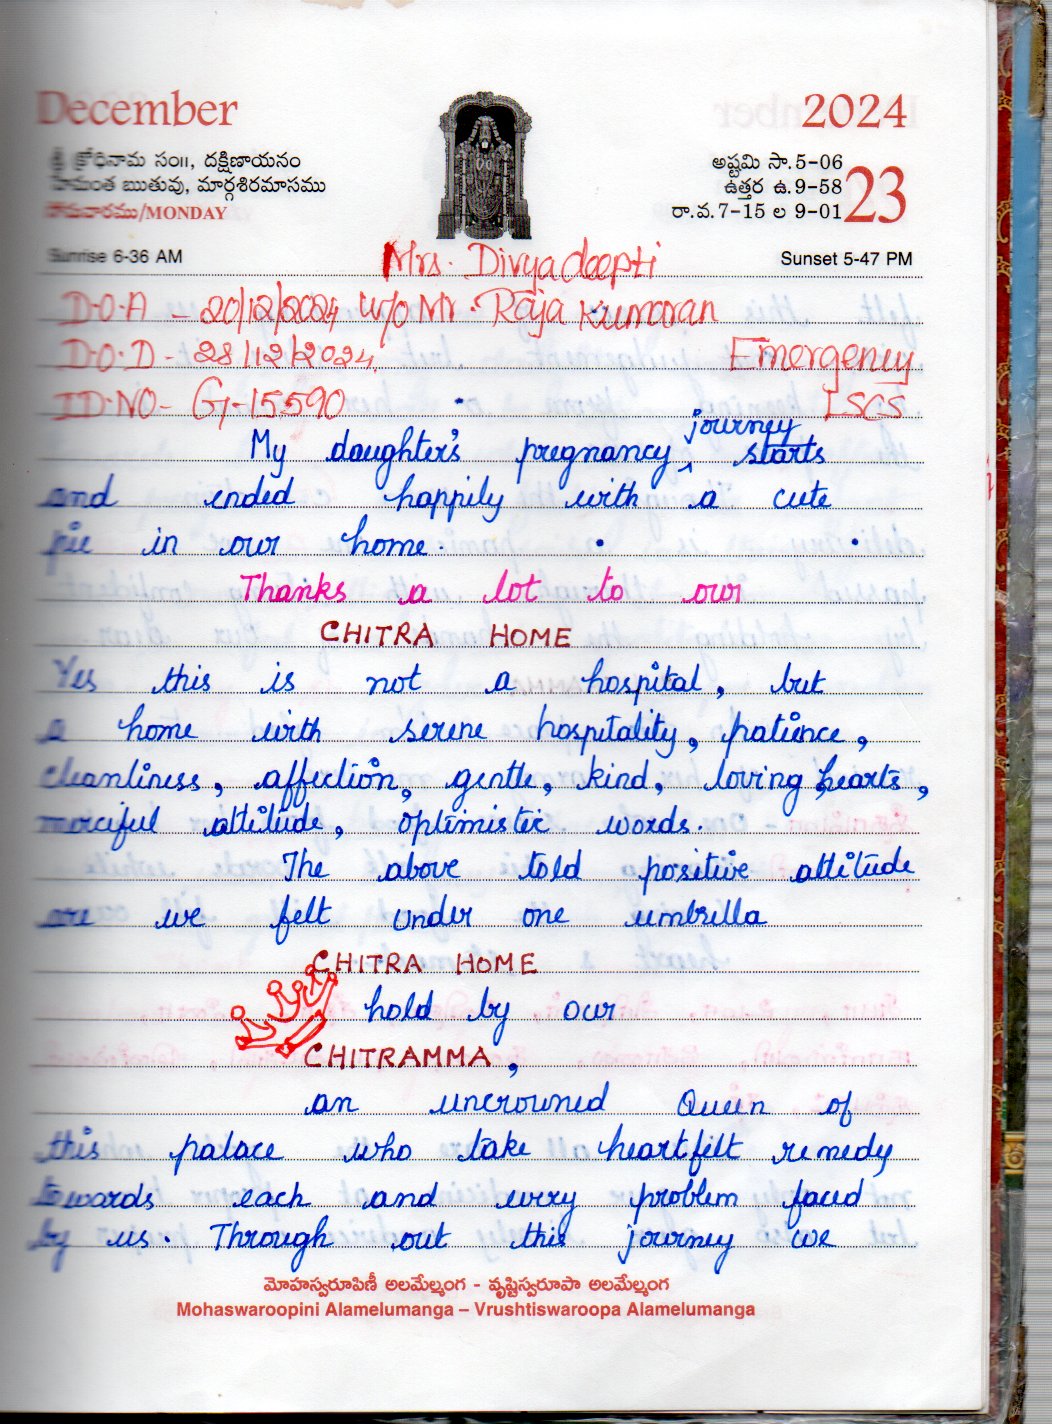 December
2024
శ్రీ క్రోధినామ సం॥, దక్షిణాయనం
హేమంత ఋతువు, మార్గశిరమాసము
సోమవారము/MONDAY
అష్టమి సా.5-06
ఉత్తర ఉ.9-58
రా.వ.7-15 ల 9-01
23
Sunrise 6-36 AM
Sunset 5-47 PM
Mrs. Divyadeepti
D.O.A - 20/12/2024 W/o Mr. Raja Kumaran
D.O.D - 28/12/2024.
Emergency
ID.NO- G1-15590
LSCS
My daughter's pregnancy journey starts
and ended happily with a cute
pie in our home.
Thanks a lot to our
CHITRA HOME
Yes this is not a hospital, but
a home with serene hospitality, patience,
cleanliness, affection, gentle, kind, loving hearts,
merciful attitude, optimistic words.
The above told positive attitude
are we felt under one umbrella
CHITRA HOME
hold by our
CHITRAMMA,
an uncrowned Queen of
this palace who take heartfelt remedy
towards each and every problem faced
by us. Through out this journey we
మోహస్వరూపిణీ అలమేల్మంగ - వృష్టిస్వరూపా అలమేల్మంగ
Mohaswaroopini Alamelumanga – Vrushtiswaroopa Alamelumanga